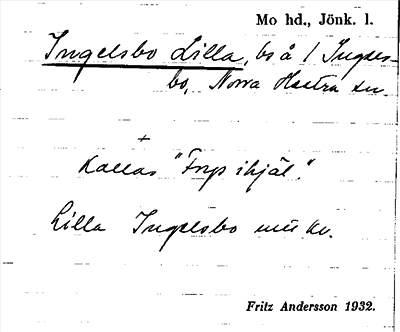 Mo hd., Jönk. l.
Ingelsbo Lilla, bs å 1 Ingels-
bo, Norra Hestra sn.
+
Kallas "Frys ihjäl."
Lilla Ingelsbo
Fritz Andersson 1932.